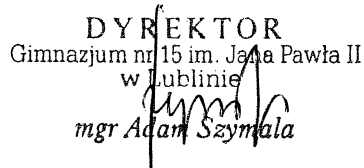 DYREKTOR
Gimnazjum nr 15 im. Jana Pawła II
w Lublinie
mgr Adam Szymala